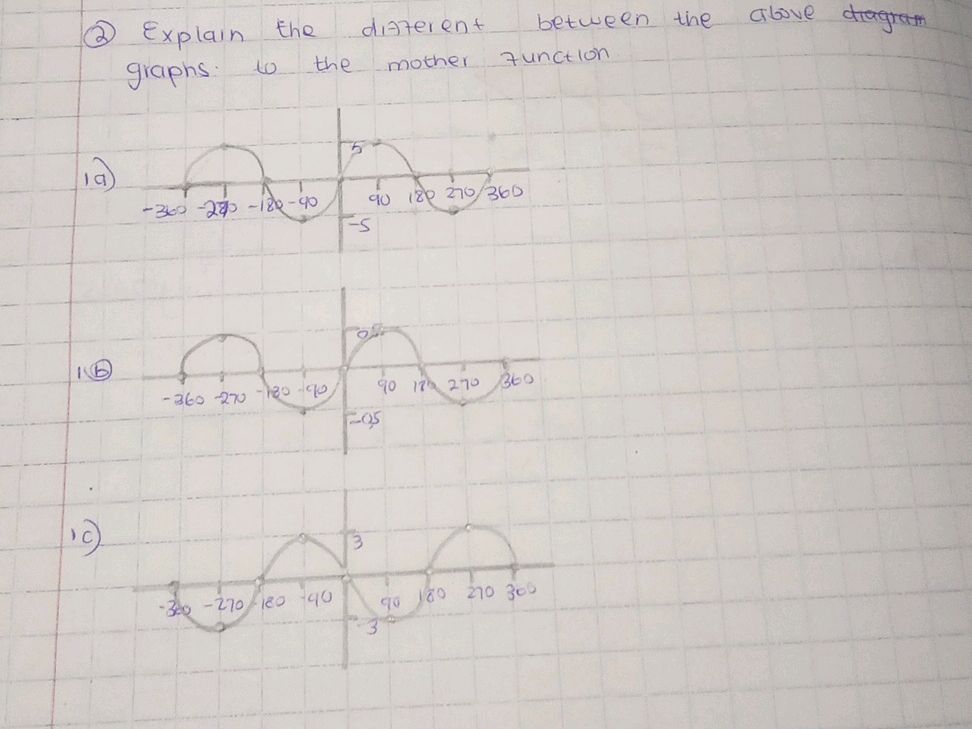 ② Explain the different between the above diagram
graphs. to the mother function
1a)
5
-360 -270 -180 -90 90 180 270 360
-5
1.ⓑ
0,5
-360 -270 -180 -90 90 180 270 360
-0,5
1c)
3
-360 -270 -180 -90 90 180 270 360
-3